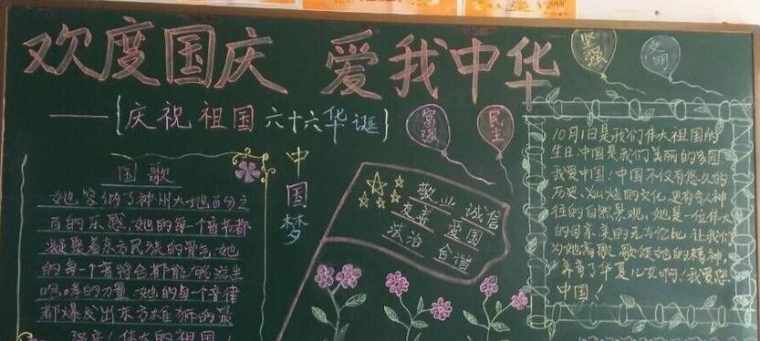 欢度国庆 爱我中华
——{庆祝祖国六十六华诞}
坚强
文明
富强
民主
国歌
她笼纳了神州大地百分之
百的乐感,她的每一个音节都
凝聚着东方民族的骨气,她
的每一个音符合都能够滋生
的力量,她的每一个音律
都爆发出东方雄狮的最
强音!伟大的祖国!
中国梦
敬业 诚信
友善 爱国
法治 合谐
10月1日是我们伟大祖国的
生日,中国是我们美丽的家园
我爱中国!中国不仅有悠久的
历史、灿烂的文化,更有令人神
往的自然景观,她是一位伟大
的母亲,美的无与伦比,让我们
为她高歌,歌颂她的精神,
养育了华夏儿女啊!我爱您
中国!